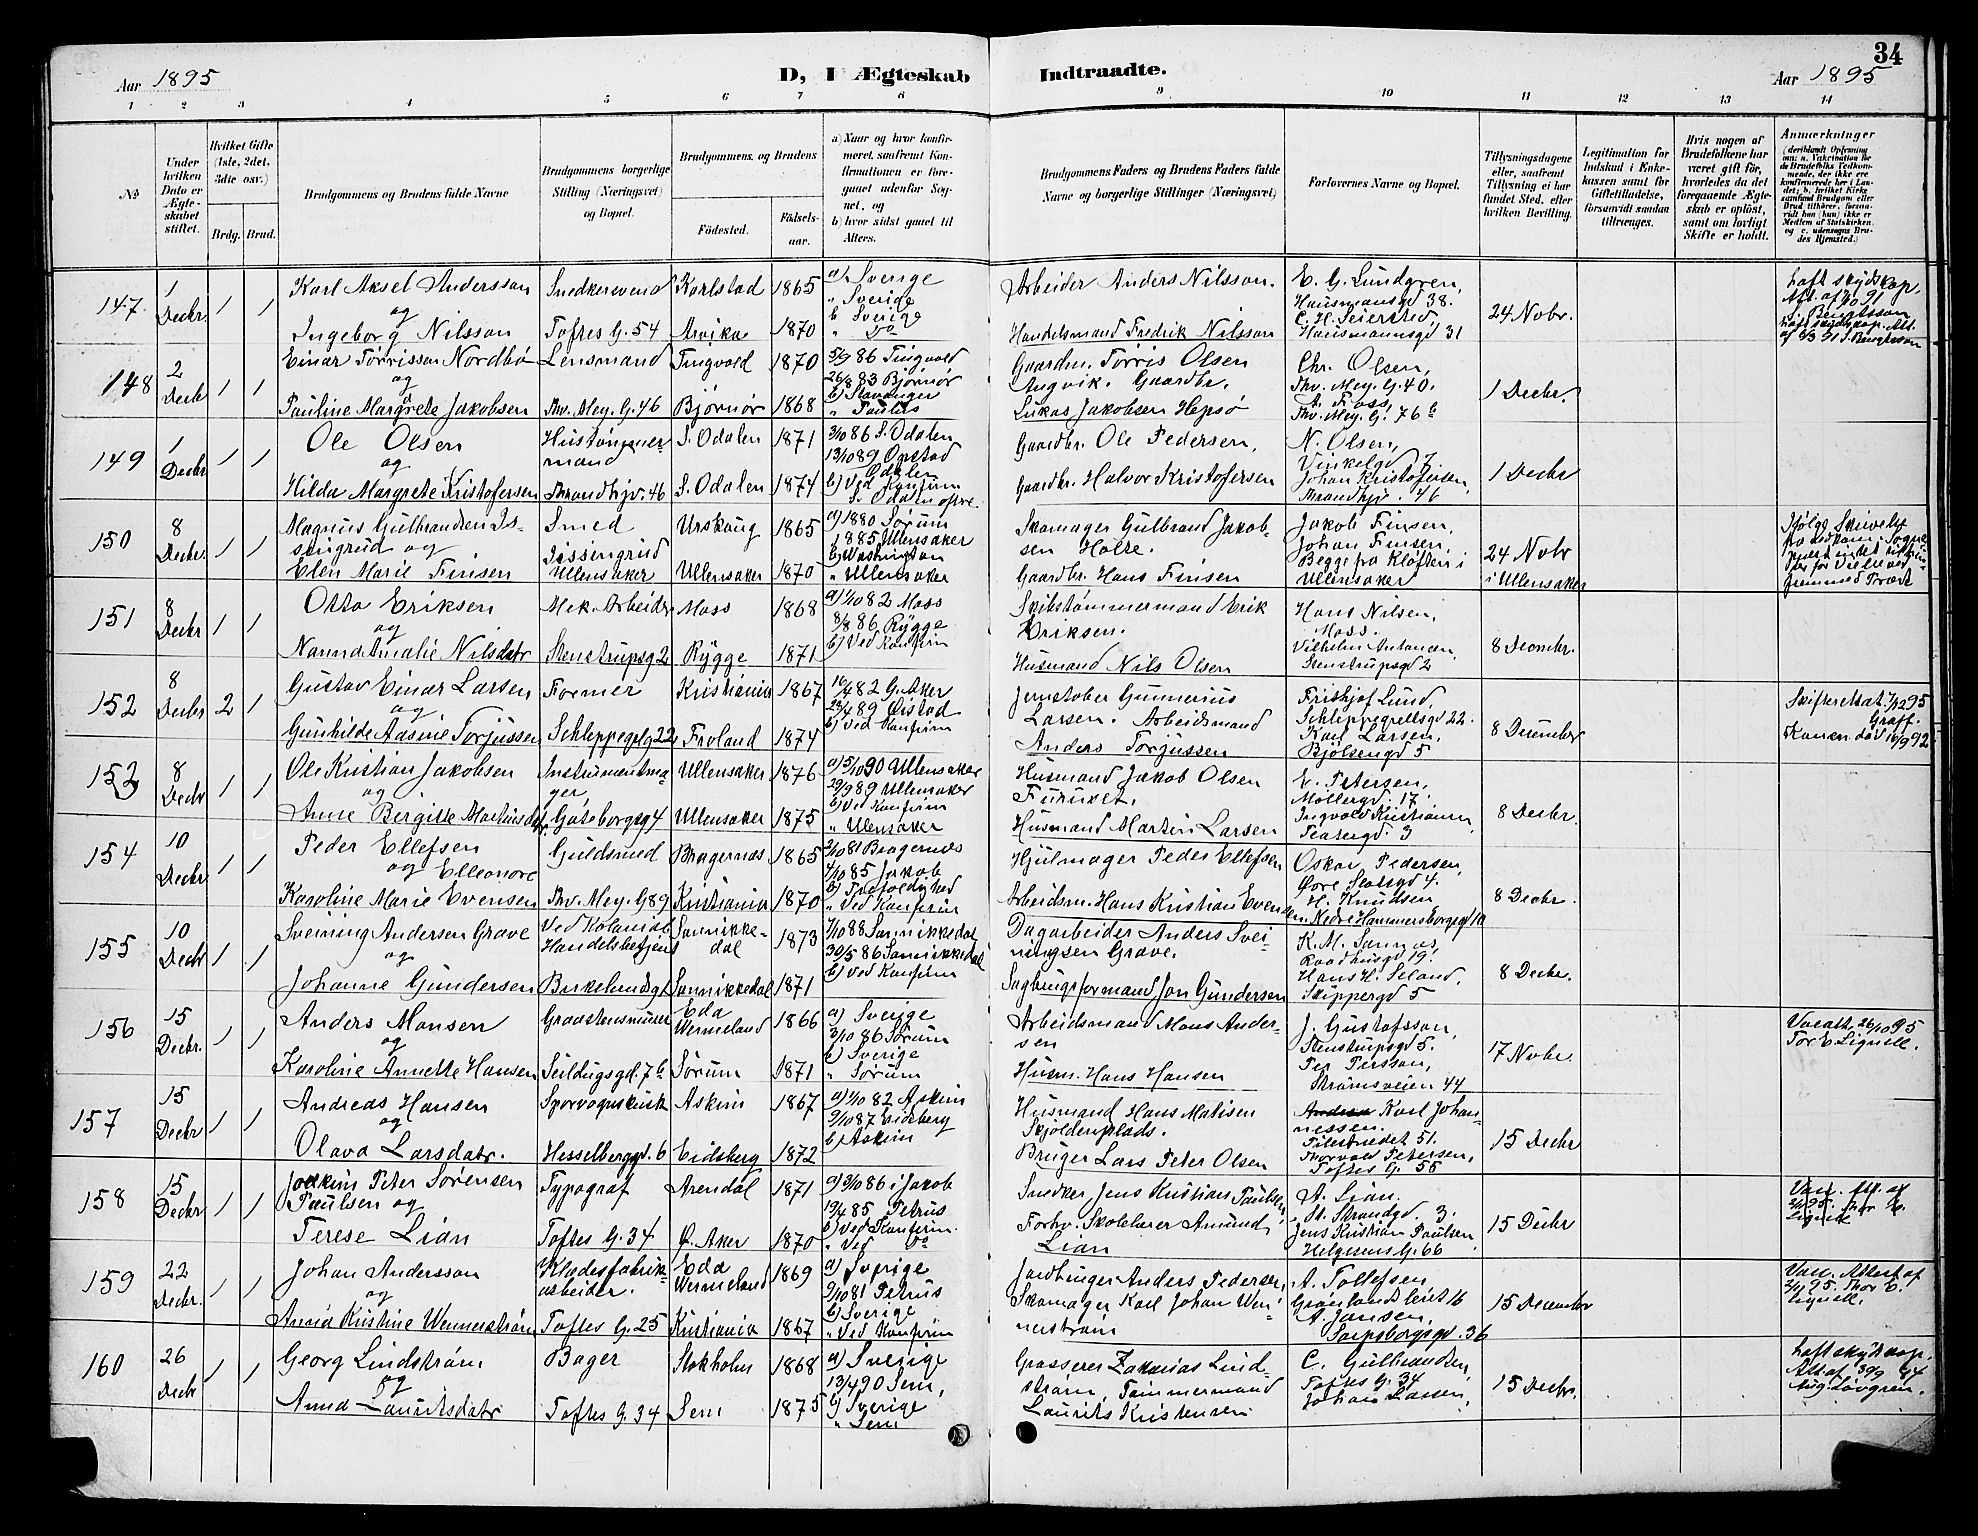 34
Aar 1895
D, I Ægteskab Indtraadte.
Aar 1895
1 2 3 4 5 6 7 8 9 10 11 12 13 14
No
Under hvilken Dato er Ægteskabet stiftet.
Hvilket Gifte (1ste, 2det, 3die osv.)
Brdg. Brud.
Brudgommens og Brudens fulde Navne
Brudgommens borgerlige Stilling (Næringsvei) og Bopæl.
Brudgommens og Brudens
Födested. Födsels-aar.
a) Naar og hvor konfirmeret, saafremt Konfirmationen er foregaaet udenfor Sognet, og
b) hvor sidst gaaet til Alters.
Brudgommens Faders og Brudens Faders fulde Navne og borgerlige Stillinger (Næringsvei).
Forlovernes Navne og Bopæl.
Tillysningsdagene eller, saafremt Tillysning ei har fundet Sted, efter hvilken Bevilling.
Legitimation for Indskud i Enkekassen samt for Giftetilladelse, forsaavidt saadan tiltrænges.
Hvis nogen af Brudefolkene har været gift för, hvorledes da det foregaaende Ægteskab er oplöst, samt om lovligt Skifte er holdt.
Anmærkninger
(deriblandt Oplysning om: a. Vakcination for de Brudefolks Vedkommende, der ikke ere konfirmerede her i Landet; b. hvilket Kirkesamfund Brudgom eller Brud tilhörer, forsaavidt han (hun) ikke er Medlem af Statskirken, og c. udensogns Brudes Hjemsted.)
147 1 Decbr. 1 1
Karl Aksel Andersson
og
Ingeborg Nilsson
Snedkersvend
Toftes G. 54
Karlstad 1865
Arvika 1870
a) Sverige
" Sverige
b) Sverige
" do
Arbeider Anders Nilsson.
Handelsmand Fredrik Nilsson
E. G. Lundgren,
Hausmansgd 38.
C. H. Seiersted
Hausmannsgd 31
24 Nobr.
148 2 Decbr 1 1
Einar Törrisson Nordbö
og
Pauline Margrete Jakobsen
Lensmand
Thv. Mey. G. 46
Tingvold 1870
Bjørnør 1868
5/9 86 Tingvold
26/8 83 Bjørnør
b) Stavanger
" Paulus
Gaardm. Torris Olsen
Angvik. Gaardbr.
Lukas Jakobsen Hepsö
Chr. Olsen,
Thv. Mey. G. 40.
A. Foss,
Thv. Mey. G. 76 b
1 Decbr.
149 1 Decbr 1 1
Ole Olsen
og
Hilda Margrete Kristofersen
Hustømmermand
Strandhjv. 46
S. Odalen 1871
S. Odalen 1874
3/10 86 S. Odalen
13/10 89 Opstad Odalen
b) Ved Konfirm
S. Odalen
Gaardbr. Ole Pedersen,
Gaardbr. Halvor Kristofersen
N. Olsen,
Vinkelgd 7
Johan Kristofersen,
Strandhjv. 46
1 Decbr
150 8 Decbr. 1 1
Magnus Gulbrandsen Issingrud og
Elen Marie Finsen
Smed
Issingrud
Ullensaker
Urskoug 1865
Ullensaker 1870
a) 1880 Sørum
1885 Ullensaker
b) Washington
" Ullensaker
Skomager Gulbrand Jakobsen Holte.
Gaardbr. Hans Finsen
Jakob Finsen,
Johan Finsen,
Begge fra Kløften i
Ullensaker
24 Nobr
i Ullensaker
151 8 Decbr 1 1
Otto Eriksen
og
Nanna Amalie Nilsdatr
Mek. Arbeider
Stenstrupsg 2
Moss 1868
Rygge 1871
a) 1/10 82 Moss
8/8 86 Rygge
b) Ved Konfirm
Skibstømmermand Erik Eriksen.
Husmand Nils Olsen
Hans Nilsen,
Moss.
Vilhelm Antonsen,
Stenstrupsgd 2
8 Decmbr.
152 8 Decbr 2 1
Gustav Einar Larsen
og
Gunhilde Aasine Torjussen
Former
Schleppegrlg 22
Kristiania 1867
Froland 1874
16/4 82 G. Aker
23/4 89 Øistad
b) Ved Konfirm
Jernstøber Gunnerius
Larsen. Arbeidsmand
Anders Torjussen
Frithjof Lund,
Schleppegrellsgd 22.
Karl Larsen,
Bjølsengd 5
8 December
Skifteattest 7/12 95
Graff.
Konen død 16/9 92
153 8 Decbr 1 1
Ole Kristian Jakobsen
og
Anne Birgitte Martinsdatr
Instrumentmager
Gøteborgsg 4
Ullensaker 1876
Ullensaker 1875
a) 5/10 90 Ullensaker
29/9 89 Ullensaker
b) Ved Konfirm
" Ullensaker
Husmand Jakob Olsen
Husmand Martin Larsen
E. Petersen,
Møllergd. 17
Ingvold Kristiansen,
Teatergd 3
8 Decbr.
154 10 Decbr 1 1
Peder Ellefsen
og Elleonore
Karoline Marie Evensen
Guldsmed
Thv. Mey. G 89
Bragernæs 1865
Kristiania 1870
2/10 81 Bragernæs
4/10 85 Jakob
b) Trefoldighed
" Ved Konfirm
Hjulmager Peder Ellefsen
Arbeidsm. Hans Kristian Evensen
Oskar Pedersen,
Øvre Slotsgd 4.
H. Knudsen
Nedre Hammersborgsgd 10
8 Decbr.
155 10 Decbr 1 1
Sveining Andersen Grave
og
Johanne Gundersen
Ved Kolonial
Handelsbetjent
Birkelundsg 1
Sannikkedal 1873
Sannikkedal 1871
7/10 88 Sannikkedal
30/5 86 Sannikkedal
b) Ved Konfirm
Dagarbeider Anders Sveiningsen Grave.
Sagbrugsformand Jon Gundersen
K. M. Sannæs,
Raadhusgd 19.
Hans H. Seland,
Skippergd 5
8 Decbr.
156 15 Decbr. 1 1
Anders Monsen
og
Karoline Annette Hansen
Graastensmurer
Seildugsgd. 7 b
Eda Wermeland 1866
Sørum 1871
a) Sverige
3/10 86 Sørum
b) Sverige
" Sørum
Arbeidsmand Mons Andersen
Husm. Hans Hansen
J. Gustafsson,
Stenstrupsgd 5.
Per Persson,
Strømsveien 44
17 Nobr.
Vacatt. 26/10 95
Tor E. Lignell.
157 15 Decbr 1 1
Andreas Hansen
og
Olava Larsdatr.
Sporvognskusk
Hesselberggd. 6
Askim 1867
Eidsberg 1872
a) 1/10 82 Askim
9/10 87 Eidsberg
b) Askim
Husmand Hans Matisen
Skjoldenplads.
Bruger Lars Peter Olsen
Karl Johannessen.
Pilestredet 51.
Thorvald Petersen,
Toftes G. 55
15 Decbr
158 15 Decbr 1 1
Joakim Peter Sørensen
Paulsen og
Terese Lian
Typograf
Toftes G. 34
Arendal 1871
Ø. Aker 1870
a) 3/10 86 i Jakob
19/4 85 Petrus
b) Ved Konfirm.
" Ved do
Snedker Jens Kristian Paulsen,
Forhv. Skolelærer Amund
Lian
A. Lian.
St. Strandgd. 3.
Jens Kristian Paulsen,
Helgesens G. 66
15 Decbr
159 22 Decbr. 1 1
Johan Andersson
og
Anna Kristine Wennerstrøm
Klædesfabrikarbeider.
Toftes G. 25
Eda Wermeland 1869
Kristiania 1867
a) Sverige
9/10 81 Petrus
b) Sverige
" Ved Konfirm
Jordbruger Anders Pedersen,
Skomager Karl Johan Wennerstrøm
A. Tollefsen,
Grønlands leiret 16
A. Jansen,
Sarpsborggd. 36
15 December
Vacc. Attest af
2/11 95. Thor E.
Lignell.
160 26 Decbr 1 1
Georg Lindstrøm
og
Anna Lauritsdatr
Bager
Toftes G. 34
Stokholm 1868
Sem 1875
a) Sverige
13/4 90 Sem,
b) Sverige
" Sem
Grosserer Zakarias Lindstrøm, Tømmermand
Laurits Kristensen
C. Gulbrandsen,
Toftes G. 34
Johan Larsen,
15 Decbr.
Haft skydskop.
Att. af 30/9 94
Aug. Lövgren.